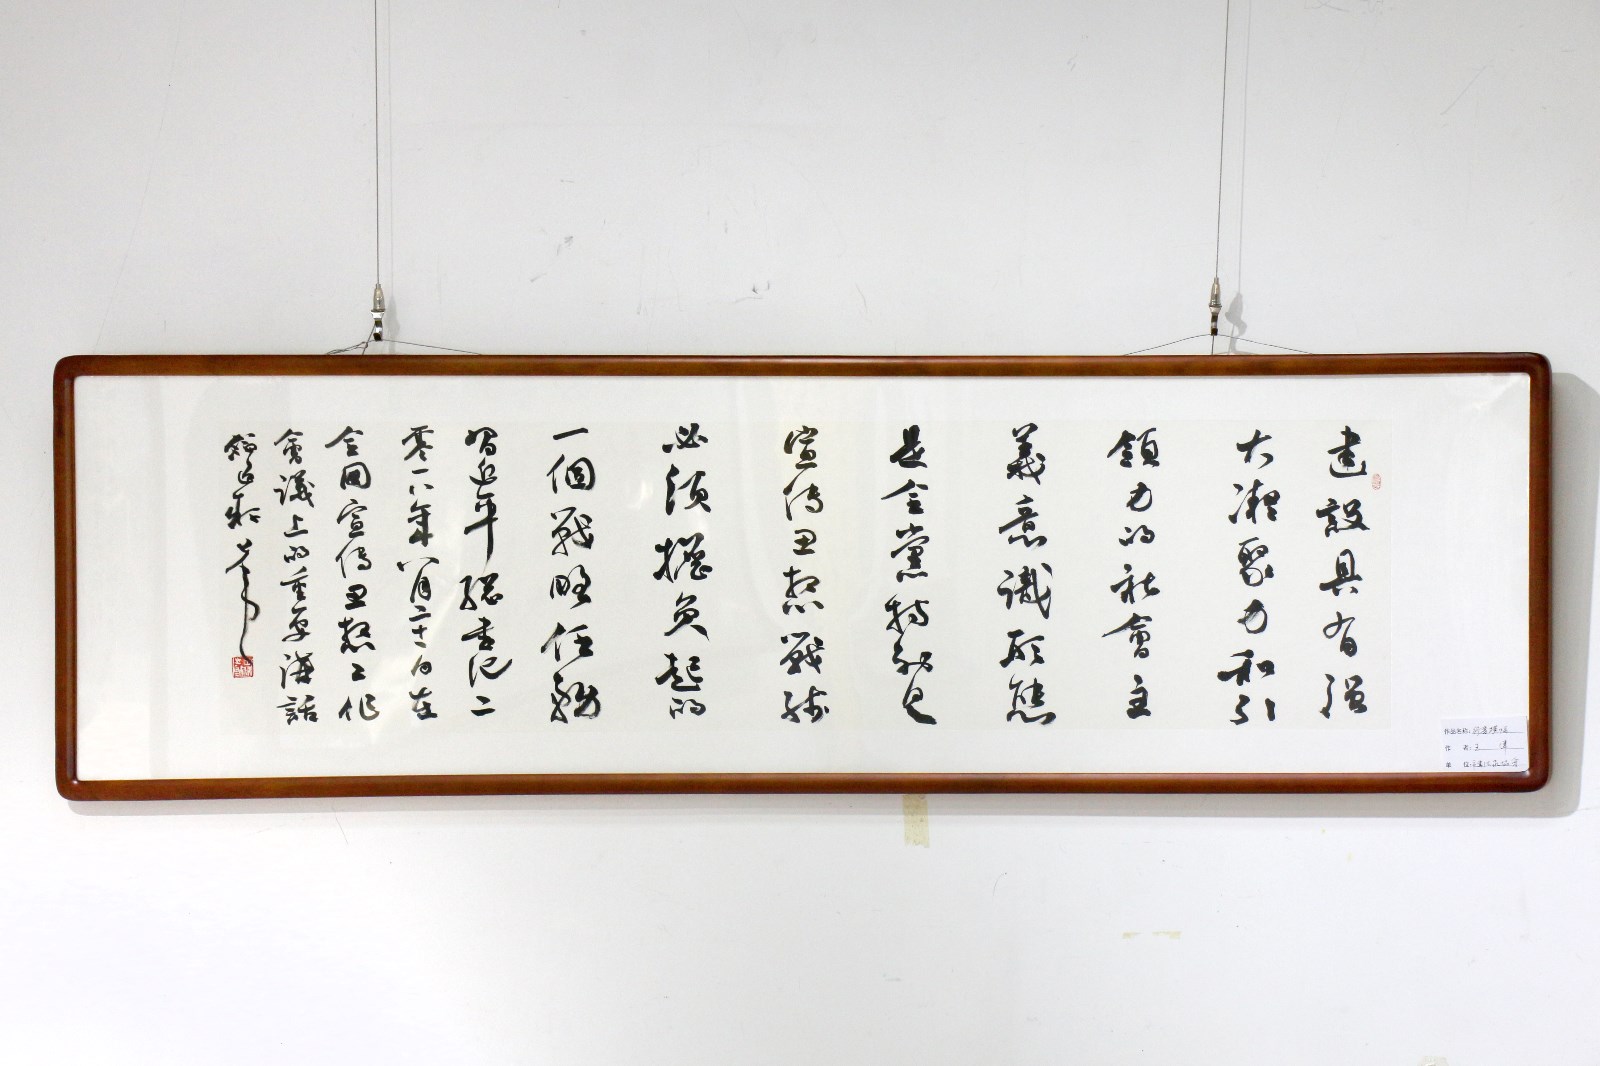 建設具有强
大凝聚力和引
領力的社會主
義意識形態
是全黨特别是
宣傳思想戰綫
必須擔負起的
一個戰略任務
習近平總書記二
零一八年八月二十一日在
全国宣傳思想工作
會議上的重要講話
作品名称:
作 者:王
单 位: